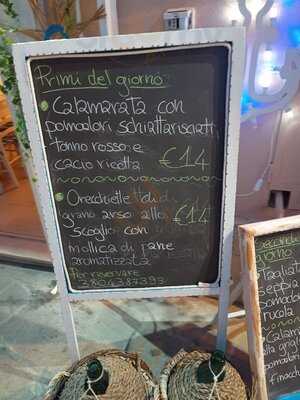 Primi del giorno
Calamarata con
pomodori schiattarisciati
tonno rosso e
cacio ricotta €14
Orecchiette di
grano arso allo €14
scoglio con
mollica di pane
aromatizzata
Per riservare
giorno
seppia
pomodo
rucola
Calama
alla grigl
pomodor
finocch